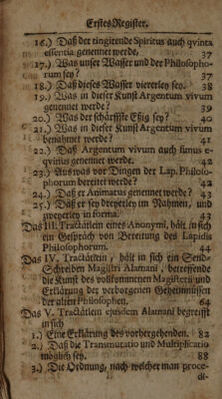 Erstes Register.
16.) Daß der tingirende Spiritus auch qvinta
essentia genennet werde. 37
17.) Was unser Wasser und der Philosopho-
rum sey? 37
18.) Daß dieses Wasser viererley sey. 38
19.) Was in dieser Kunst Argentum vivum
genennet werde? 39
20.) Was der schärffste Eßig sey? 40
21.) Was in dieser Kunst Argentum vivum
benahmet werde? 41
22.) Daß Argentum vivum auch fumus e-
qvinus genennet werde. 42
23.) Aus was vor Dingen der Lap. Philoso-
phorum bereitet werde? 42
24.) Daß er Animatus genennet werde? 43
25.) Daß er sey dreyerley im Nahmen, und
zweyerley in forma. 43
Das III. Tractätlein eines Anonymi, hält in sich
ein Gespräch von Bereitung des Lapidis
Philosophorum. 44
Das IV. Tractätlein, hält in sich ein Send-
Schreiben Magistri Alamani, betreffende
die Kunst des vollkommenen Magisterii und
Erklärung der verborgenen Geheimnüssen
der alten Philosophen. 64
Das V. Tractätlein ejusdem Alamani begreifft
in sich
1.) Eine Erklärung des vorhergehenden. 82
2.) Daß die Transmutatio und Multiplicatio
möglich sey. 88
3.) Die Ordnung, nach welcher man proce-
di-